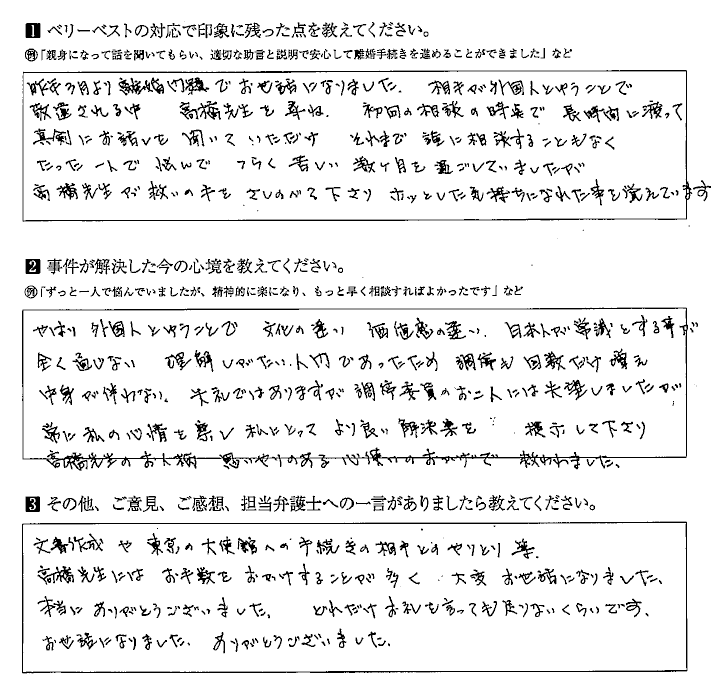 1 ベリーベストの対応で印象に残った点を教えてください。
例「親身になって話を聞いてもらい、適切な助言と説明で安心して離婚手続きを進めることができました」など
昨年 月より 離婚問題でお世話になりました. 相手が外国人とゆうことで
敬遠される中 高橋先生を尋ね. 初回の相談の時点で 長時間に渡って
真剣にお話しを聞いていただけ それまで誰に相談することもなく
たった一人で悩んで つらく苦しい数ヶ月を過ごしていましたが
高橋先生が救いの手をさしのべて下さり ホッとした気持ちになれた事を覚えています
2 事件が解決した今の心境を教えてください。
例「ずっと一人で悩んでいましたが、精神的に楽になり、もっと早く相談すればよかったです」など
やはり 外国人とゆうことで 文化の違い 価値感の違い. 日本人が常識とする事が
全く通じない 理解しがたい人間であったため 調停も回数だけ増え
中身が伴わない。失礼ではありますが 調停委員のお二人には失望しましたが
常に私の心情を察し 私にとって より良い解決案を 提示して下さり
高橋先生のお人柄 思いやりのある心使いのおかげで 救われました、
3 その他、ご意見、ご感想、担当弁護士への一言がありましたら教えてください。
文書作成や東京の大使館への手続き の相手とのやりとり等.
高橋先生にはお手数をおかけすることが多く 大変お世話になりました、
本当にありがとうございました。 どれだけお礼を言っても足りないくらいです、
お世話になりました. ありがとうございました.